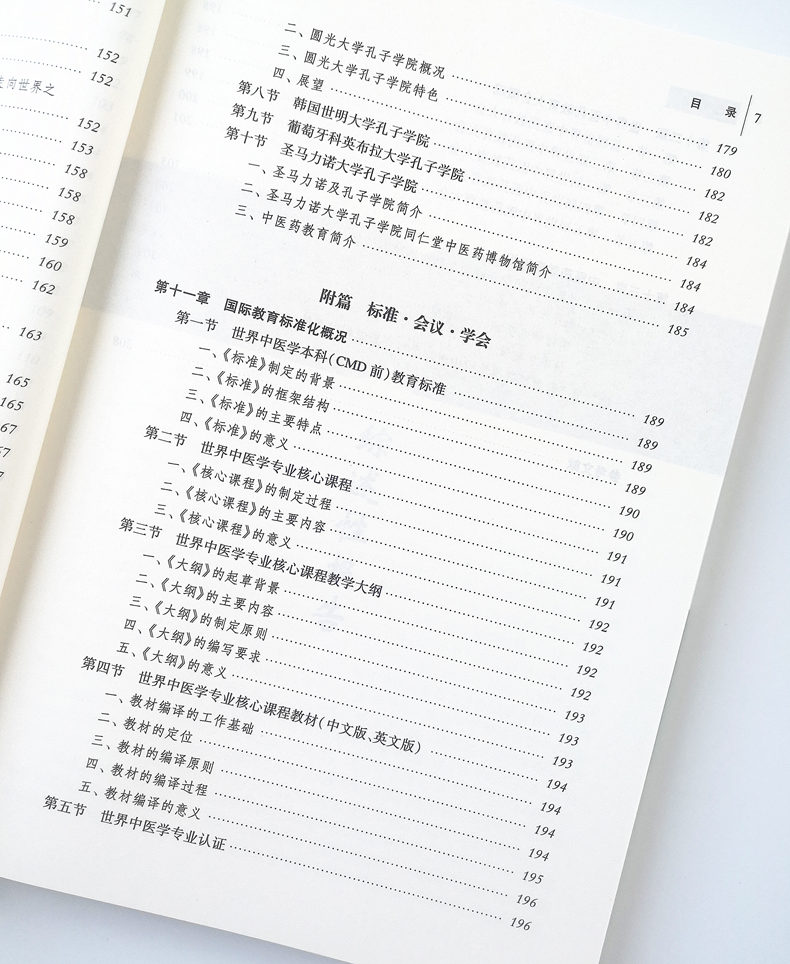 151
152
152
走向世界之
152
153
158
158
158
159
160
162
163
165
165
67
67
7
目 录 7
二、圆光大学孔子学院概况 179
三、圆光大学孔子学院特色 180
四、展望 182
第八节 韩国世明大学孔子学院 182
第九节 葡萄牙科英布拉大学孔子学院 182
第十节 圣马力诺大学孔子学院 184
一、圣马力诺及孔子学院简介 184
二、圣马力诺大学孔子学院同仁堂中医药博物馆简介 184
三、中医药教育简介 185
附篇 标准·会议·学会
第十一章 国际教育标准化概况 189
第一节 世界中医学本科(CMD 前)教育标准 189
一、《标准》制定的背景 189
二、《标准》的框架结构 189
三、《标准》的主要特点 190
四、《标准》的意义 190
第二节 世界中医学专业核心课程 191
一、《核心课程》的制定过程 191
二、《核心课程》的主要内容 191
三、《核心课程》的意义 192
第三节 世界中医学专业核心课程教学大纲 192
一、《大纲》的起草背景 192
二、《大纲》的主要内容 192
三、《大纲》的制定原则 193
四、《大纲》的编写要求 193
五、《大纲》的意义 193
第四节 世界中医学专业核心课程教材(中文版、英文版) 194
一、教材编译的工作基础 194
二、教材的定位 194
三、教材的编译原则 194
四、教材的编译过程 195
五、教材编译的意义 196
第五节 世界中医学专业认证 196